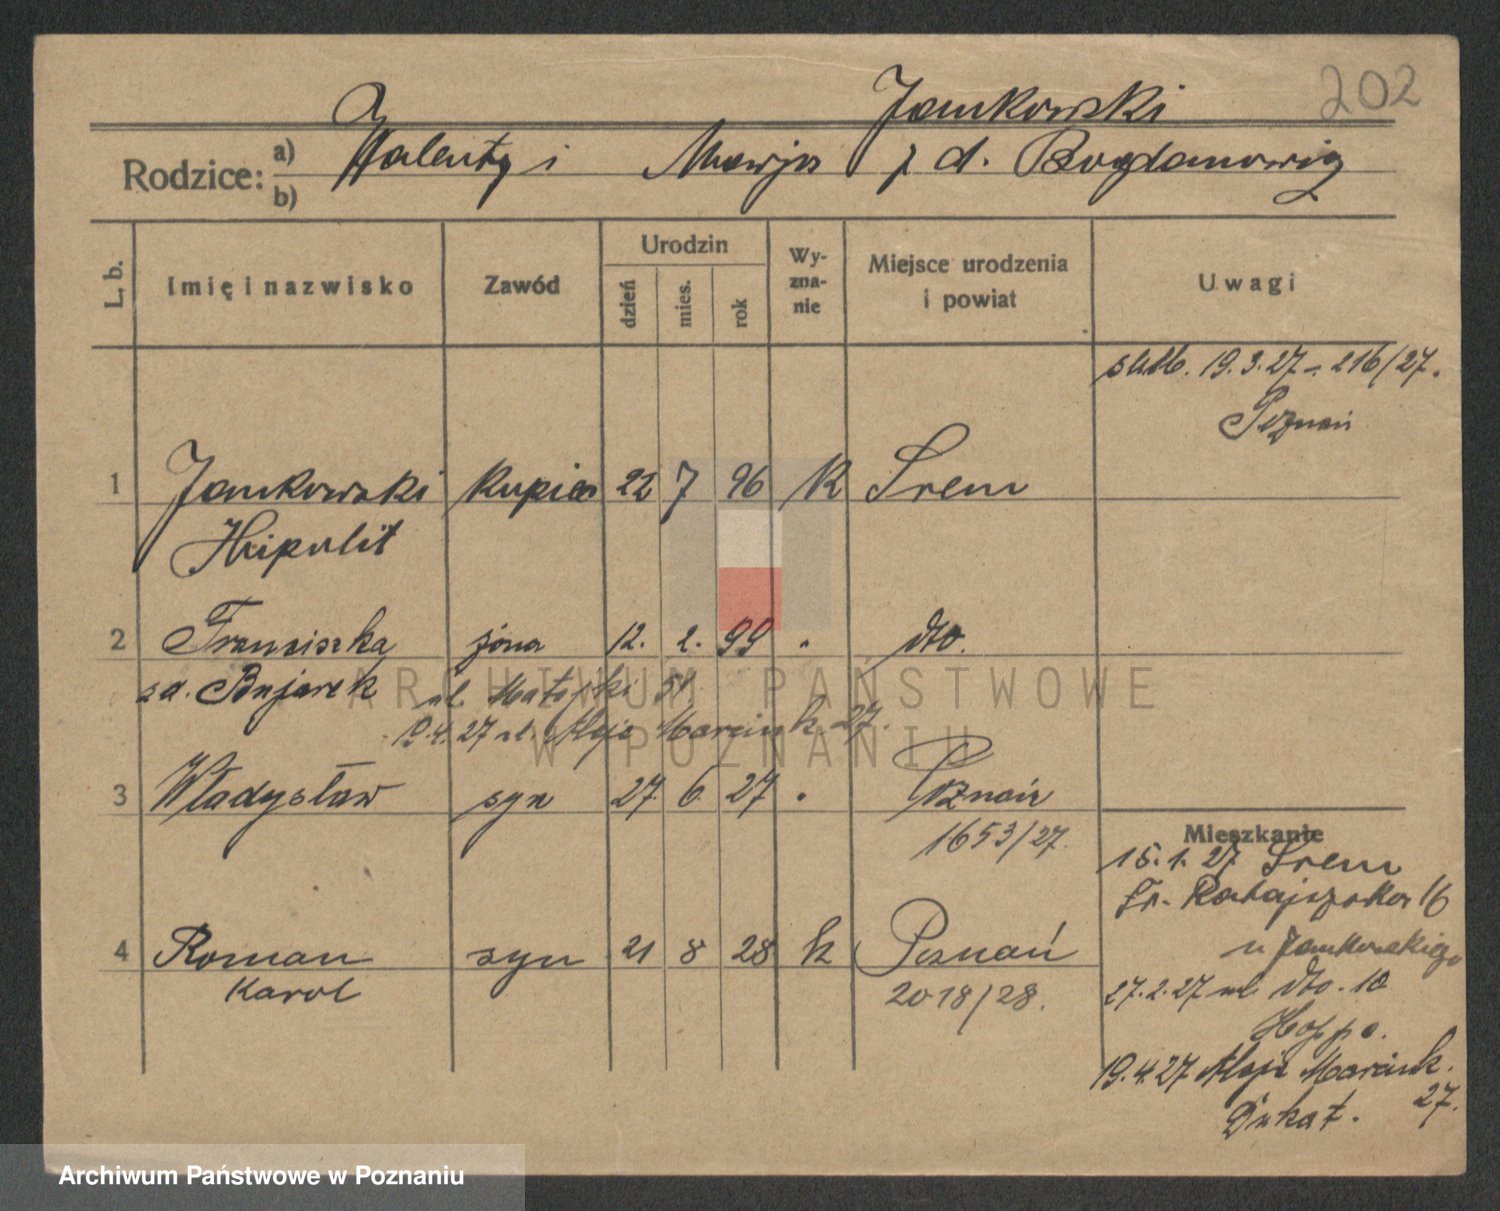 202
Jankowski
Rodzice: a) Walenty i Marja z d. Bogdanowicz
b)
L. b. Imię i nazwisko Zawód Urodzin dzień mies. rok Wy-zna-nie Miejsce urodzenia i powiat Uwagi
19.3.27 - 216/27.
Poznań
1 Jankowski kupiec 22 7 96 k Śrem
Hipolit
2 Franciszka żona 12. 2. 99 " dto.
z d. Bujarek ul. Matejki 51.
19.4.27 ul. Aleje Marcink. 27.
3 Władysław syn 27. 6. 27 " Poznań
1653/27.
Mieszkanie
15.1.27 Śrem
Fr. Ratajczaka 16
u Jankowskiego
4 Roman syn 21 8 28 k Poznań
Karol
2018/28.
27.2.27 ul. dto. 10
Hoppe.
19.4.27 Aleje Marcink. 27.
Dukat.
ARCHIWUM PAŃSTWOWE
W POZNANIU
Archiwum Państwowe w Poznaniu